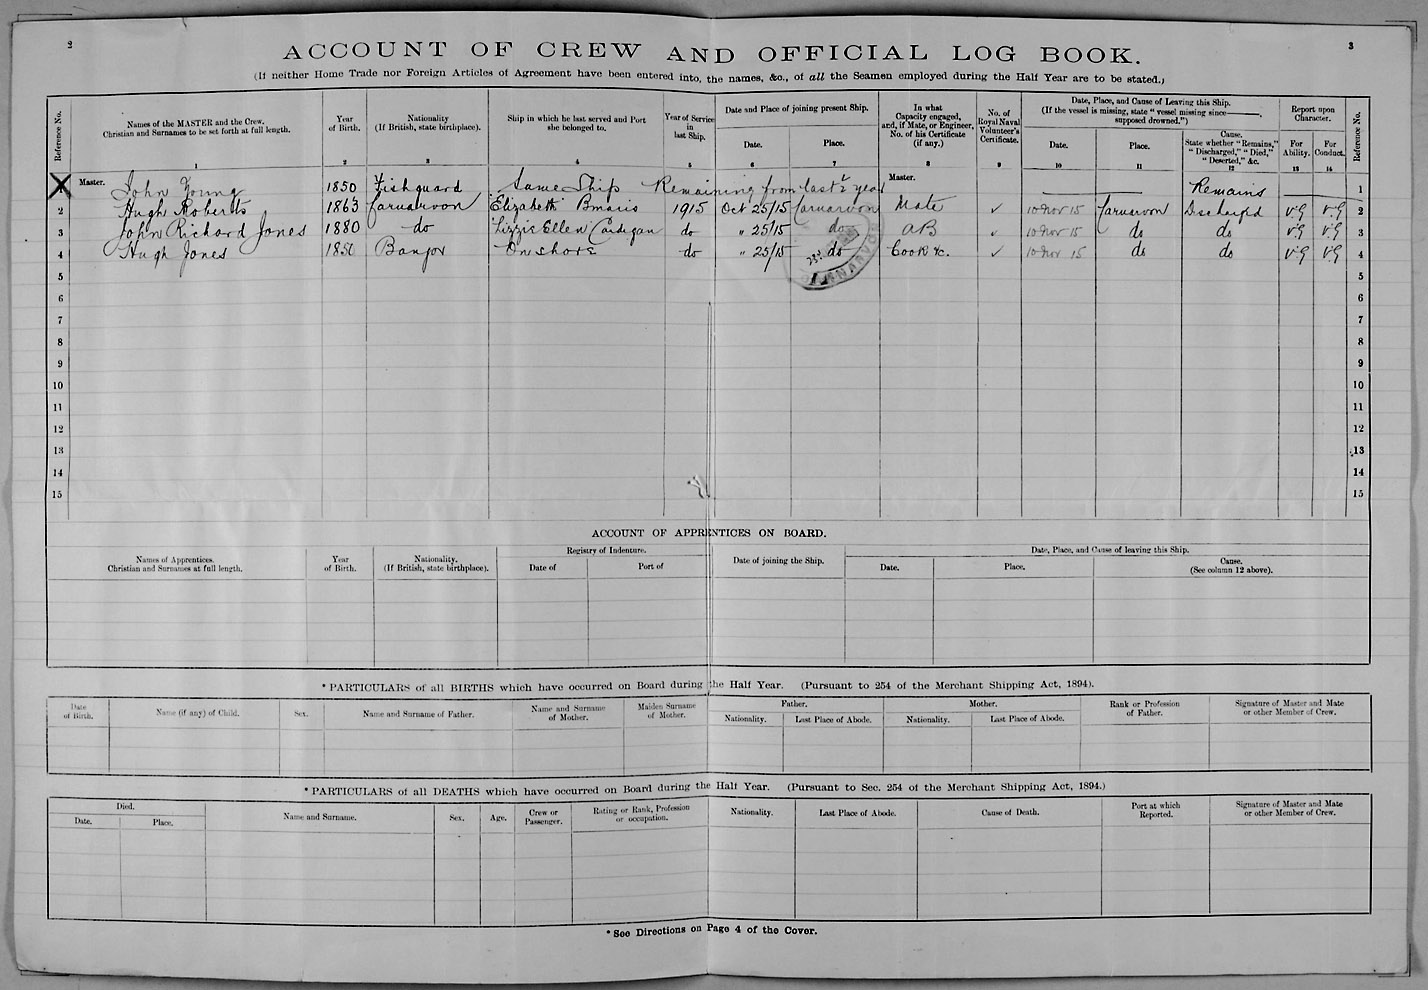 2
3
ACCOUNT OF CREW AND OFFICIAL LOG BOOK.
(If neither Home Trade nor Foreign Articles of Agreement have been entered into, the names, &c., of all the Seamen employed during the Half Year are to be stated.)
Reference No.
Names of the MASTER and the Crew. Christian and Surnames to be set forth at full length.
Year of Birth.
Nationality (If British, state birthplace).
Ship in which he last served and Port she belonged to.
Year of Service in last Ship.
Date and Place of joining present Ship.
Date.
Place.
In what Capacity engaged, and, if Mate, or Engineer, No. of his Certificate (if any.)
No. of Royal Naval Volunteer's Certificate.
Date, Place, and Cause of Leaving this Ship.
(If the vessel is missing, state "vessel missing since ———, supposed drowned.")
Date.
Place.
Cause. State whether "Remains," "Discharged," "Died," "Deserted," &c.
Report upon Character.
For Ability.
For Conduct.
Reference No.
1 2 3 4 5 6 7 8 9 10 11 12 13 14
1 Master. John Young 1850 Fishguard Same Ship Remaining from last ½ year Master. Remains 1
2 Hugh Roberts 1863 Carnarvon "Elizabeth" Bmaris 1915 Oct 25/15 Carnarvon Mate ✓ 10 Nov 15 Carnarvon Discharg'd V.G V.G 2
3 John Richard Jones 1880 do "Lizzie Ellen" Cardigan do " 25/15 do AB ✓ 10 Nov 15 do do V.G V.G 3
4 Hugh Jones 1850 Bangor On shore do " 25/15 do Cook &c. ✓ 10 Nov 15 do do V.G V.G 4
5 5
6 6
7 7
8 8
9 9
10 10
11 11
12 12
13 13
14 14
15 15
ACCOUNT OF APPRENTICES ON BOARD.
Names of Apprentices. Christian and Surnames at full length.
Year of Birth.
Nationality. (If British, state birthplace).
Registry of Indenture.
Date of
Port of
Date of joining the Ship.
Date, Place, and Cause of leaving this Ship.
Date.
Place.
Cause. (See column 12 above).
*PARTICULARS of all BIRTHS which have occurred on Board during the Half Year. (Pursuant to 254 of the Merchant Shipping Act, 1894).
Date of Birth.
Name (if any) of Child.
Sex.
Name and Surname of Father.
Name and Surname of Mother.
Maiden Surname of Mother.
Father.
Nationality.
Last Place of Abode.
Mother.
Nationality.
Last Place of Abode.
Rank or Profession of Father.
Signature of Master and Mate or other Member of Crew.
*PARTICULARS of all DEATHS which have occurred on Board during the Half Year. (Pursuant to Sec. 254 of the Merchant Shipping Act, 1894.)
Died.
Date.
Place.
Name and Surname.
Sex.
Age.
Crew or Passenger.
Rating or Rank, Profession or occupation.
Nationality.
Last Place of Abode.
Cause of Death.
Port at which Reported.
Signature of Master and Mate or other Member of Crew.
*See Directions on Page 4 of the Cover.